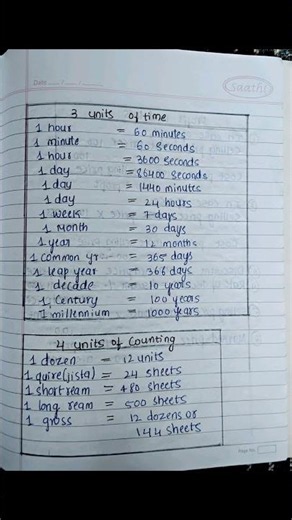 Date
Saathi
3 units of time
1 hour = 60 minutes
1 minute = 60 Seconds
1 hour = 3600 Seconds
1 day = 86400 Seconds
1 day = 1440 minutes
1 day = 24 hours
1 week = 7 days
1 Month = 30 days
1 year = 12 months
1 common yr = 365 days
1 leap year = 366 days
1 decade = 10 years
1 Century = 100 years
1 millennium = 1000 years
4 units of Counting
1 dozen = 12 units
1 quire(jista) = 24 sheets
1 short ream = 480 sheets
1 long ream = 500 sheets
1 gross = 12 dozens or
144 sheets
Page No.